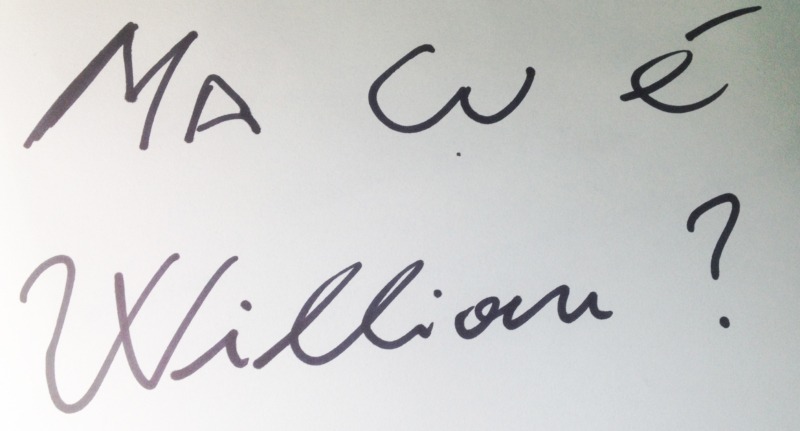 Ma cu é
William ?